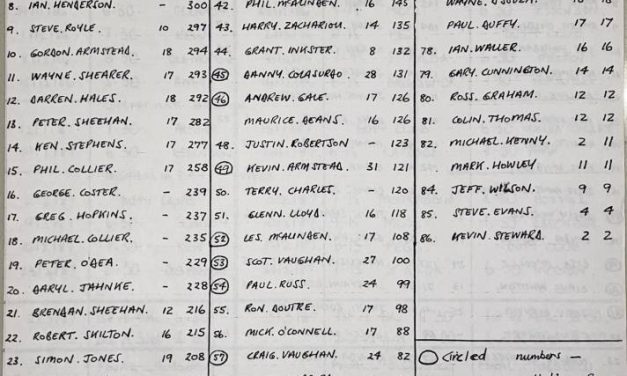 8. IAN. HENDERSON. - 300
9. STEVE. ROYLE. 10 297
10. GORDON. ARMSTEAD. 18 294
11. WAYNE. SHEARER. 17 293
12. DARREN. HALES. 18 292
13. PETER. SHEEHAN. 17 282
14. KEN. STEPHENS. 17 277
15. PHIL. COLLIER. 17 258
16. GEORGE. COSTER. - 239
17. GREG. HOPKINS. - 237
18. MICHAEL. COLLIER. - 235
19. PETER. O'DEA. - 229
20. DARYL. JAHNKE. - 228
21. BRENDAN. SHEEHAN. 12 216
22. ROBERT. SKILTON. 16 215
23. SIMON. JONES. 19 208
42. PHIL. McALINDEN. 16
43. HARRY. ZACHARIOU. 14 135
44. GRANT. INKSTER. 8 132
45 DANNY. COLASURDO. 28 131
46 ANDREW. GALE. 17 126
MAURICE. DEANS. 16 126
48. JUSTIN. ROBERTSON - 123
49 KEVIN. ARMSTEAD. 31 121
50. TERRY. CHARLES. - 120
51. GLENN. LLOYD. 16 118
52 LES. McALINDEN. 17 108
53 SCOT. VAUGHAN. 27 100
54 PAUL. RUSS. 24 99
55. RON. DOUTRE. 17 98
56. MICK. O'CONNELL. 17 88
57 CRAIG. VAUGHAN. 24 82
WAYNE.
PAUL. DUFFY. 17 17
78. IAN. WALLER. 16 16
79. GARY. CUNNINGTON. 14 14
80. ROSS. GRAHAM. 12 12
81. COLIN. THOMAS. 12 12
82. MICHAEL. KENNY. 2 11
MARK. HOWLEY 11 11
84. JEFF. WILSON. 9 9
85. STEVE. EVANS. 4 4
86. KEVIN. STEWARD. 2 2
Circled numbers -